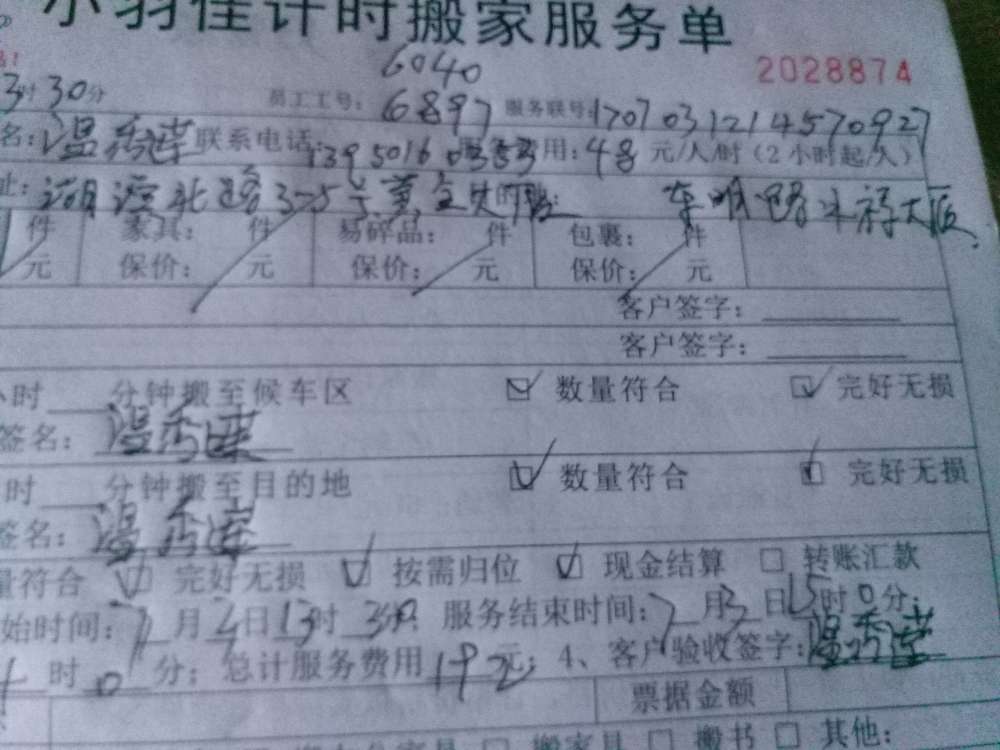 小羽佳计时搬家服务单
2028874
6040
3时30分 员工工号: 6897 服务联号: 1707031214570927
名: 温秀莲 联系电话: 费用: 48 元/人/时 (2小时起/次)
址: 湖滨北路 东明路
件 家具: 件 易碎品: 件 包裹: 件
元 保价: 元 保价: 元 保价: 元
客户签字:
客户签字:
小时 分钟搬至候车区 ☑ 数量符合 ☑ 完好无损
签名: 温秀莲
时 分钟搬至目的地 ☑ 数量符合 ☑ 完好无损
签名: 温秀莲
量符合 ☑ 完好无损 ☑ 按需归位 ☑ 现金结算 □ 转账汇款
始时间: 7月 日13时30分 服务结束时间: 7月3日15时0分;
时0分; 总计服务费用 元; 4、客户验收签字: 温秀莲
票据金额
□ 搬家具 □ 搬书 □ 其他: